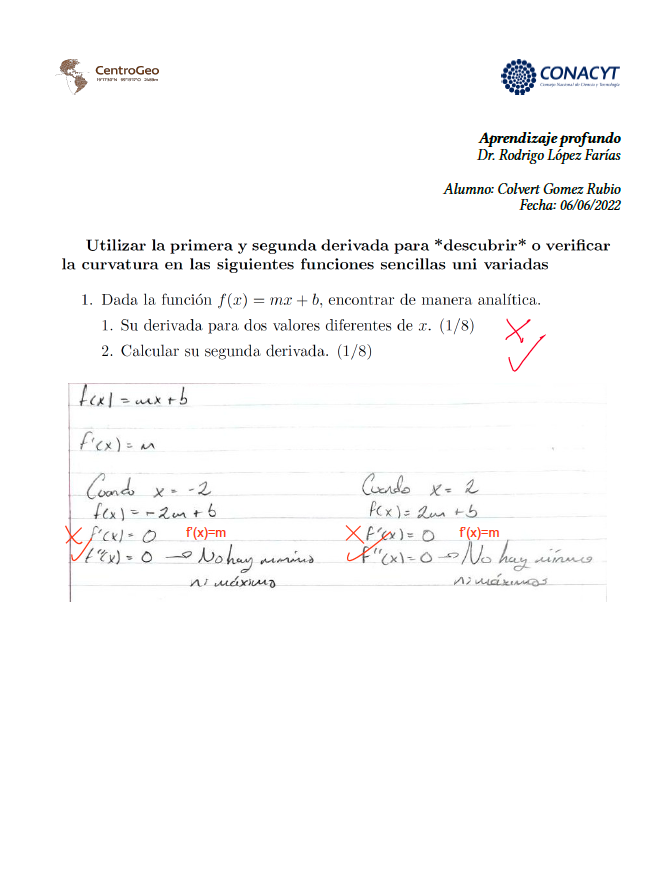 CentroGeo
CONACYT
Consejo Nacional de Ciencia y Tecnología
Aprendizaje profundo
Dr. Rodrigo López Farías
Alumno: Colvert Gomez Rubio
Fecha: 06/06/2022
Utilizar la primera y segunda derivada para *descubrir* o verificar
la curvatura en las siguientes funciones sencillas uni variadas
1. Dada la función f(x) = mx + b, encontrar de manera analítica.
1. Su derivada para dos valores diferentes de x. (1/8)
2. Calcular su segunda derivada. (1/8)
f(x) = mx + b
f'(x) = m
Cuando x = -2
f(x) = -2m + b
f'(x) = 0 f'(x)=m
f''(x) = 0 → No hay mínimo
ni máximo
Cuando x = 2
f(x) = 2m + b
f'(x) = 0 f'(x)=m
f''(x) = 0 → No hay mínimos
ni máximos